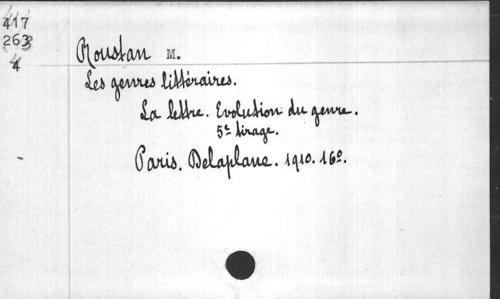 417
263
4
Roustan M.
Les genres littéraires.
La lettre. Evolution du genre.
5e tirage.
Paris. Delaplane. 1910. 16º.